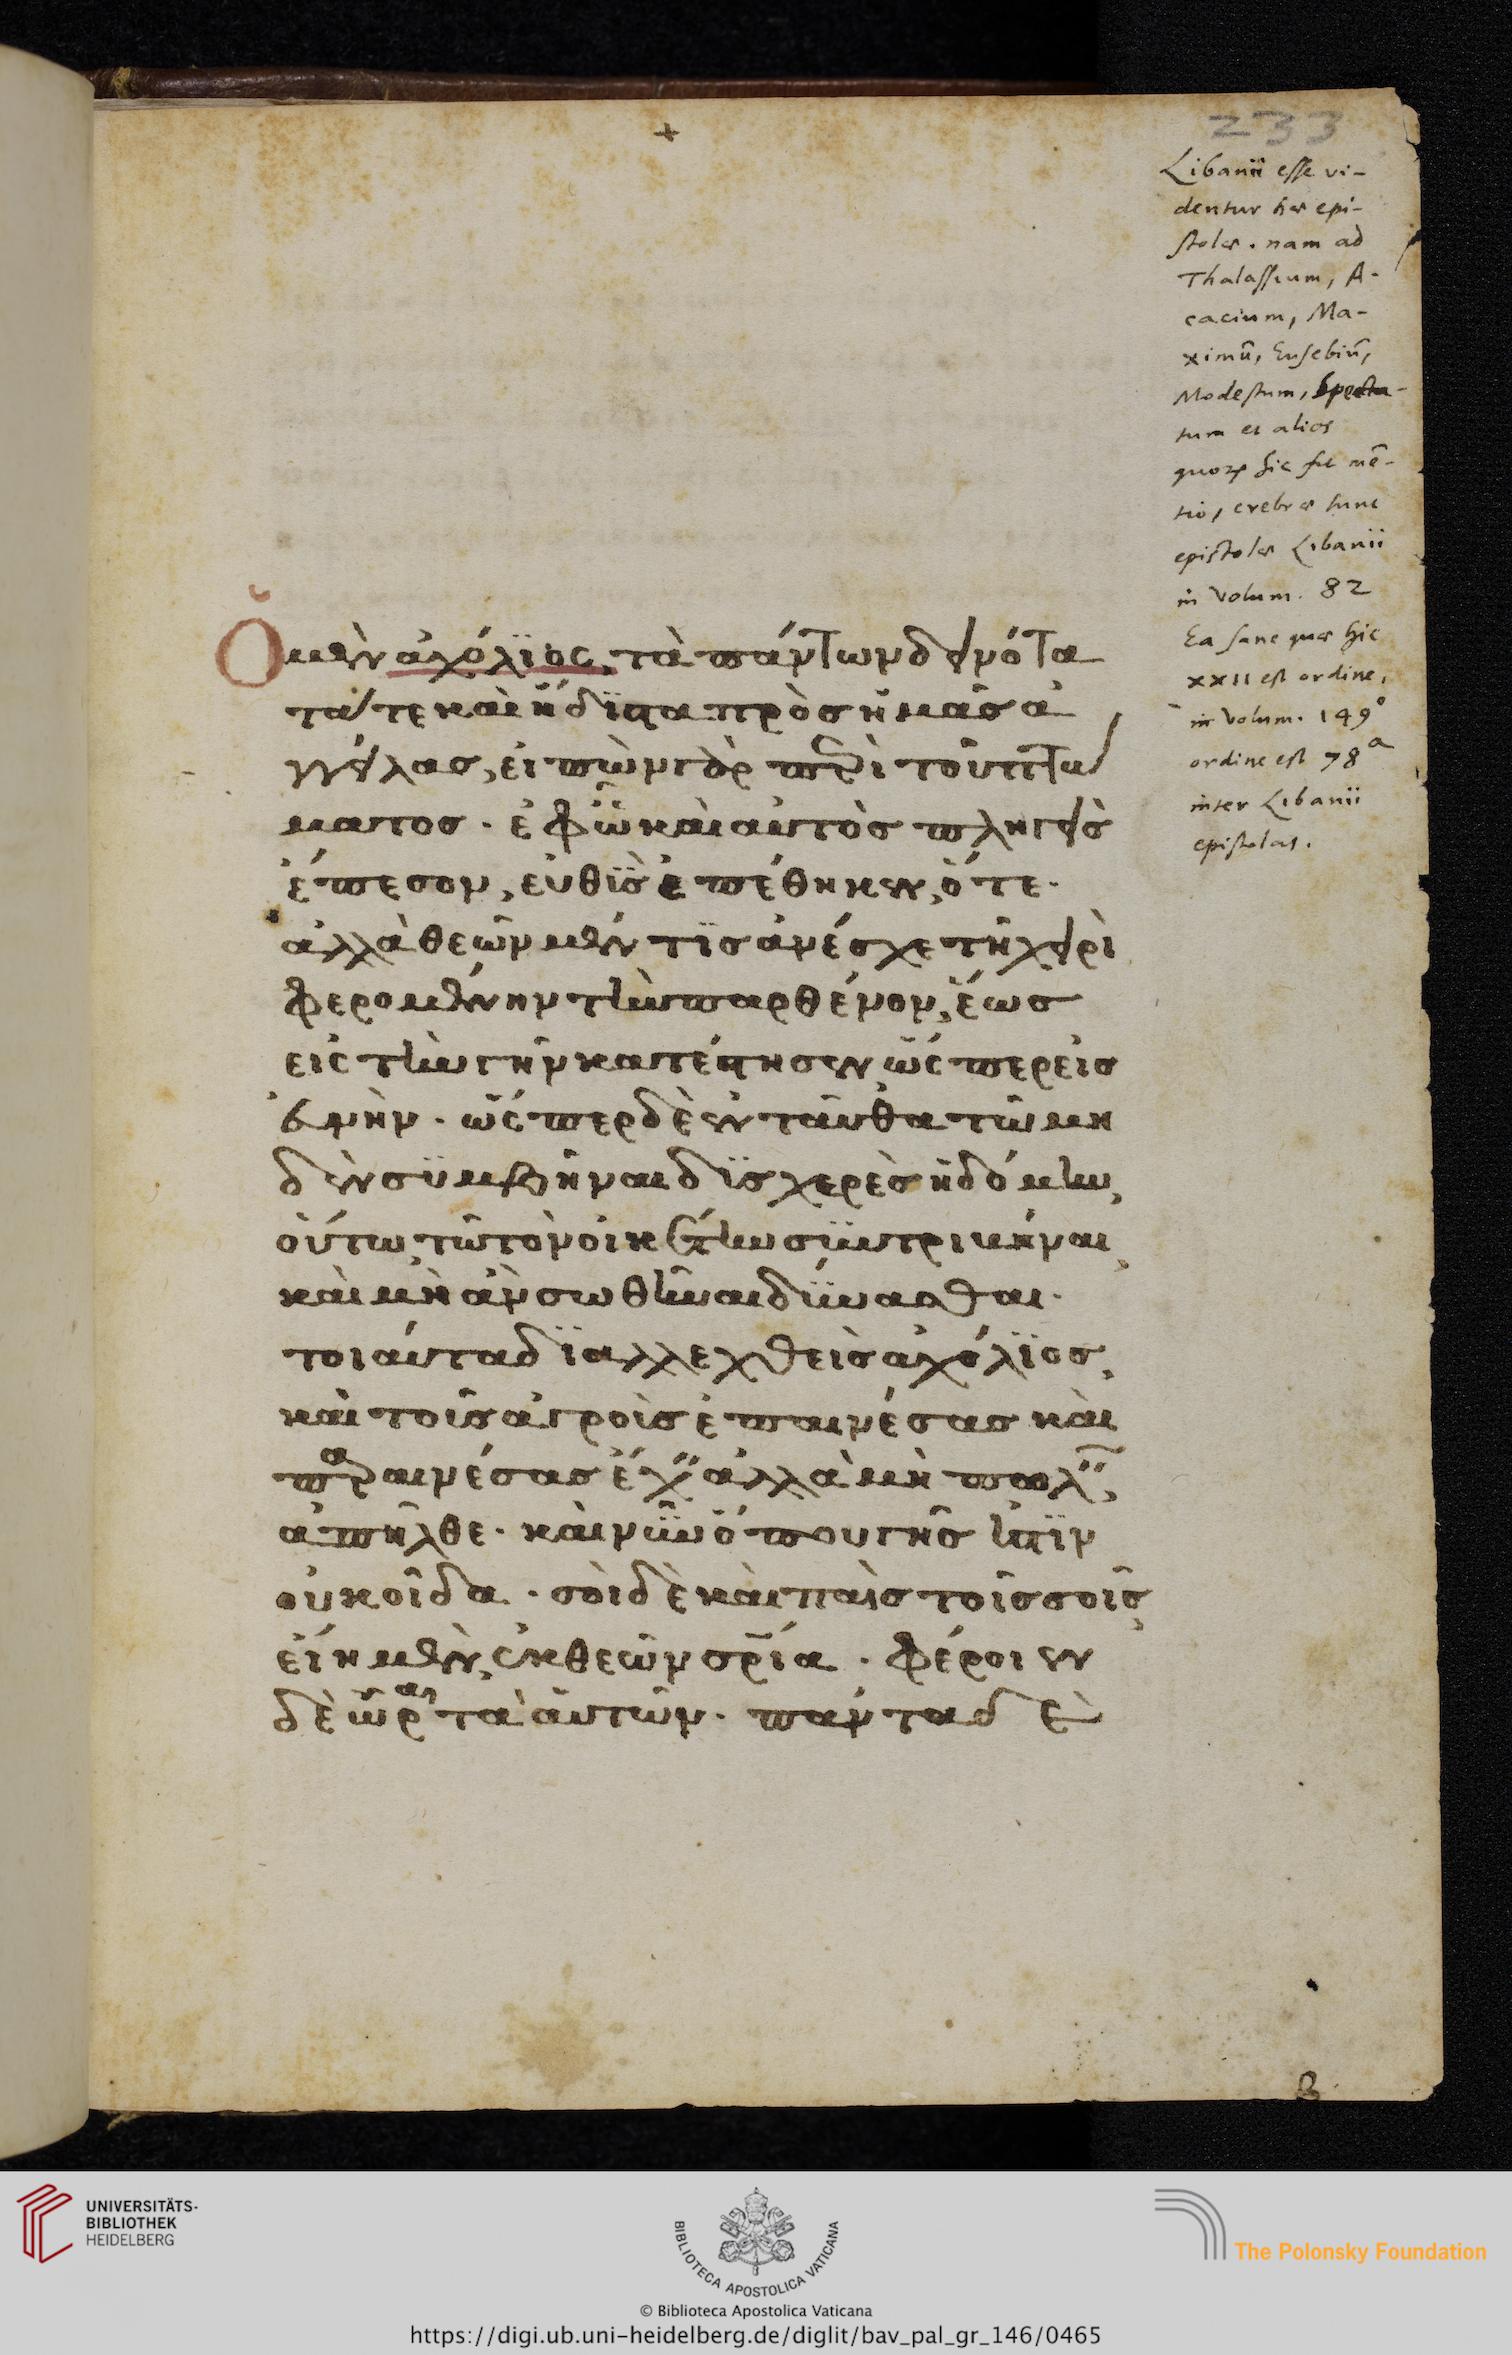 +
233
Libanii esse vi-
dentur hæ epi-
stolæ. nam ad
Thalassium, A-
cacium, Ma-
ximū, Eusebiū,
Modestum, Specta-
tum et alios
quorꝝ hic fit mē-
tio, crebræ sunt
epistolæ Libanii
in Volum. 82
Ea sane quæ hic
XXII est ordine,
in Volum. 149°
ordine est 78ª
inter Libanii
epistolas.
Ὁ μὲν ἀχόλϊος, τὰ πάντων δεινότα
τά τε καὶ ἥδϊστα πρὸς ἡμᾶς ἀ
γγείλας, εἰπὼν γὰρ περὶ τοῦ πτώ
ματος. ἐφ ὧ καὶ αὐτὸς πληγεὶς
ἔπεσον, εὐθϊς ἐπέθηκεν, ὅτε.
ἀλλὰ θεῶν μέν τϊς ἀνέσχε τῆ χειρὶ
φερομένην τὴν παρθένον, ἕως
εἰς τὴν γῆν κατέστησεν ὥσπερ εἰς
εὐνήν. ὥσπερ δὲ ἐνταῦθα τῶ μη
δὲν σϋμβῆναι δϊσχερὲς ἡδόμην,
οὕτω τῶ τὸν οἰκέτην σϋντριβῆναι,
καὶ μὴ ἀνσωθῆναι δύνασθαι.
τοιαῦτα δϊαλλεχθεὶς ἀχόλϊος,
καὶ τοῖς ἀγροῖς ἐπαινέσας καὶ
παραινέσας ἔχειν ἀλλὰ μὴ πωλεῖν,
ἀπῆλθε. καὶ νῦν ὅπου γῆς ἐστὶν
οὐκ οἶδα. σοὶ δὲ καὶ παισὶ τοῖς σοῖς,
εἴη μὲν, ἐκ θεῶν σρ̅ία. φέροιεν
δὲ ὧραι τὰ αὐτῶν. πάντα δὲ
β
UNIVERSITÄTS-
BIBLIOTHEK
HEIDELBERG
BIBLIOTECA APOSTOLICA VATICANA
The Polonsky Foundation
© Biblioteca Apostolica Vaticana
https://digi.ub.uni-heidelberg.de/diglit/bav_pal_gr_146/0465